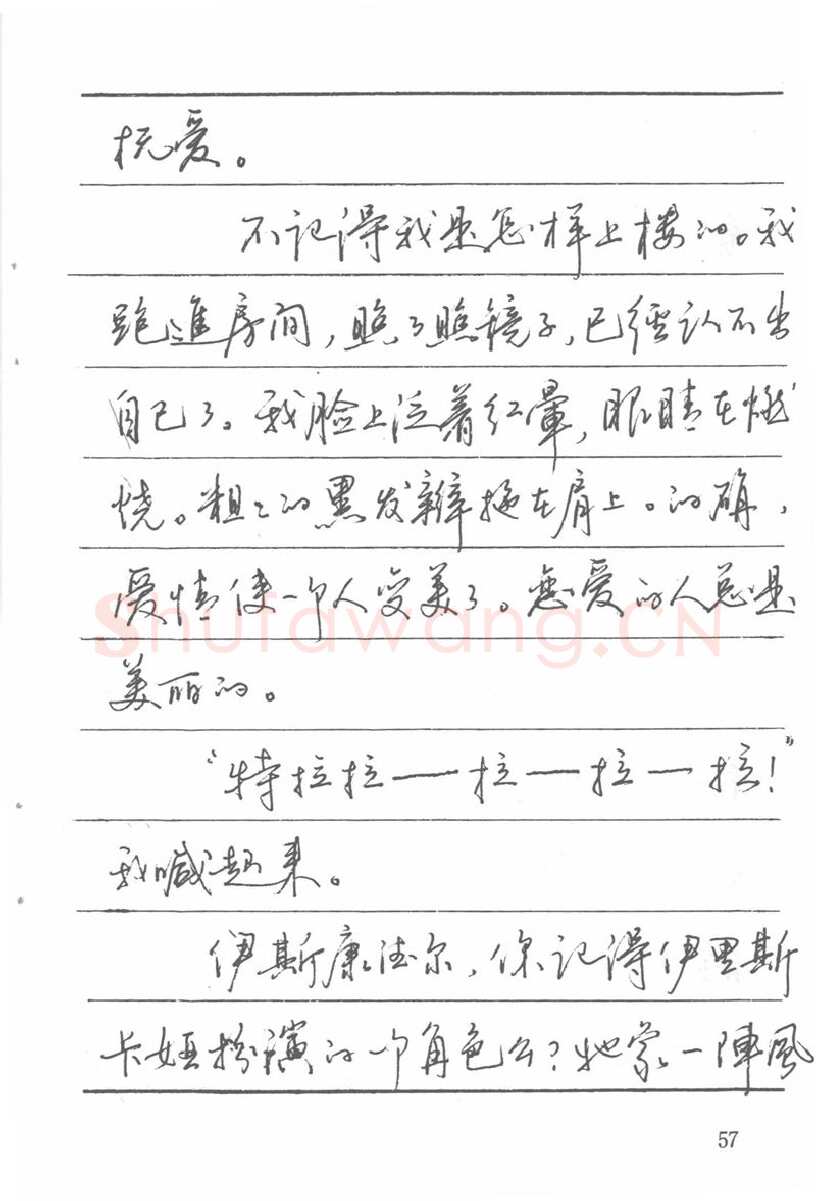 抚爱。
不记得我是怎样上楼的。我
跑進房间，瞧了瞧镜子，已經认不出
自己了。我脸上泛着红暈，眼睛在燃
烧。粗々的黑发辫拖在肩上。的确，
爱情使一个人变美了。恋爱的人总是
美丽的。
“特拉拉——拉—拉—拉！”
我喊起来。
伊斯康德尔，你记得伊里斯
卡娅扮演的个角色么？她象一陣風
Shufawang.CN
57